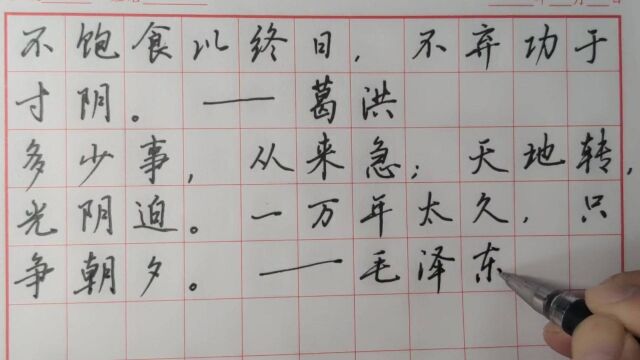 不饱食以终日，不弃功于
寸阴。——葛洪
多少事，从来急；天地转，
光阴迫。一万年太久，只
争朝夕。——毛泽东